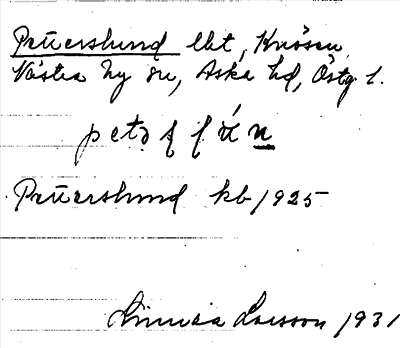 Pettersslund lbt, Knösen,
Västra Ny sn, Aska hd, Östg. l.
Petterslund kb 1925
Linnea Larsson 1931